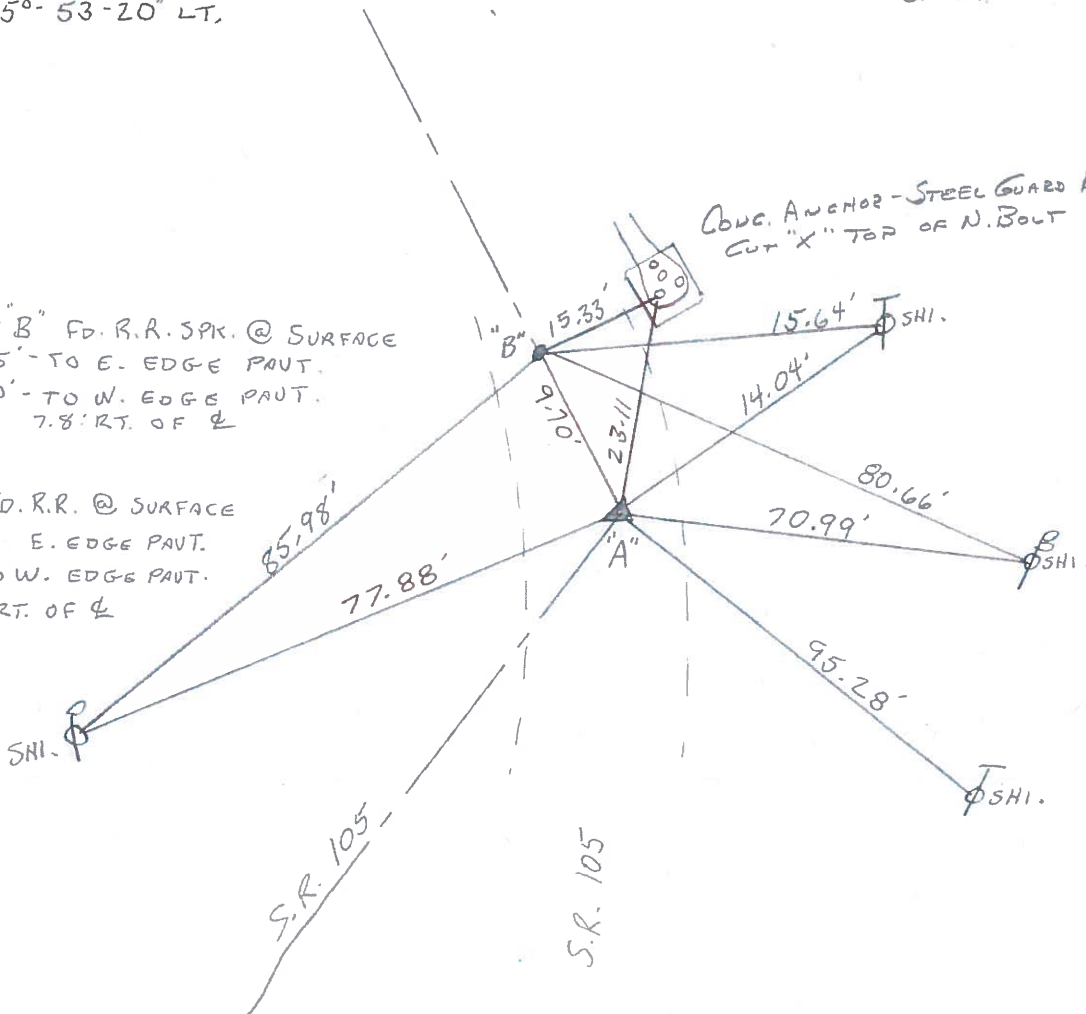 5°-53-20" LT.
CONC. ANCHOR - STEEL GUARD
CUT "X" TOP OF N. BOLT
"B" FD. R.R. SPK. @ SURFACE
5' - TO E. EDGE PAVT.
0' - TO W. EDGE PAVT.
7.8' RT. OF ℄
D. R.R. @ SURFACE
E. EDGE PAVT.
W. EDGE PAVT.
RT. OF ℄
"B"
15.33'
15.64'
SHI.
14.04'
9.70'
23.11
80.66'
70.99'
SHI.
"A"
85.98'
77.88'
95.28'
SHI.
SHI.
S.R. 105
S.R. 105